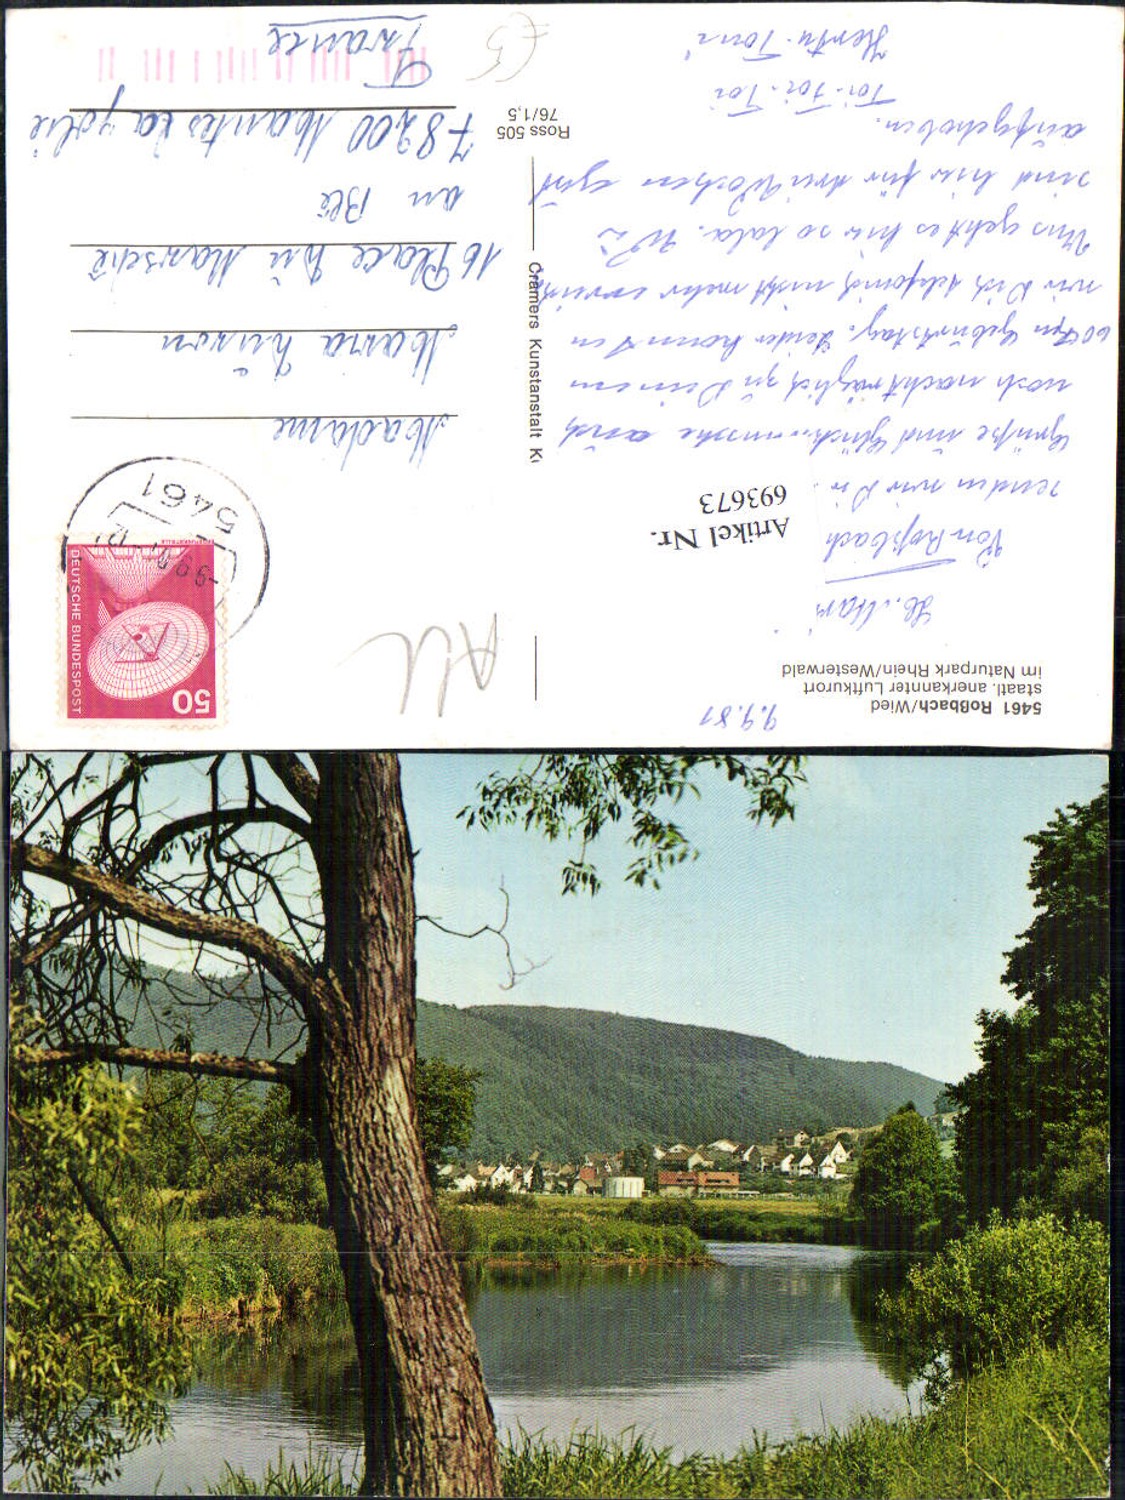 5461 Roßbach/Wied
staatl. anerkannter Luftkurort
im Naturpark Rhein/Westerwald
9.9.81
Von Roßbach
senden wir Dir
Grüße und auch
noch nachträglich zu Deinem
60ten Geburtstag. Leider konnten
wir Dich telefonisch nicht mehr
Uns geht es hier so lala. Wir
sind hier für drei Wochen gut
aufgehoben.
Toi. Toi. Toi
Artikel Nr.
693673
Cramers Kunstanstalt K
Ross 505
76/1,5
DEUTSCHE BUNDESPOST
50
5461
Madame
Mara
16 Place
78200 Mantes La Jolie
France